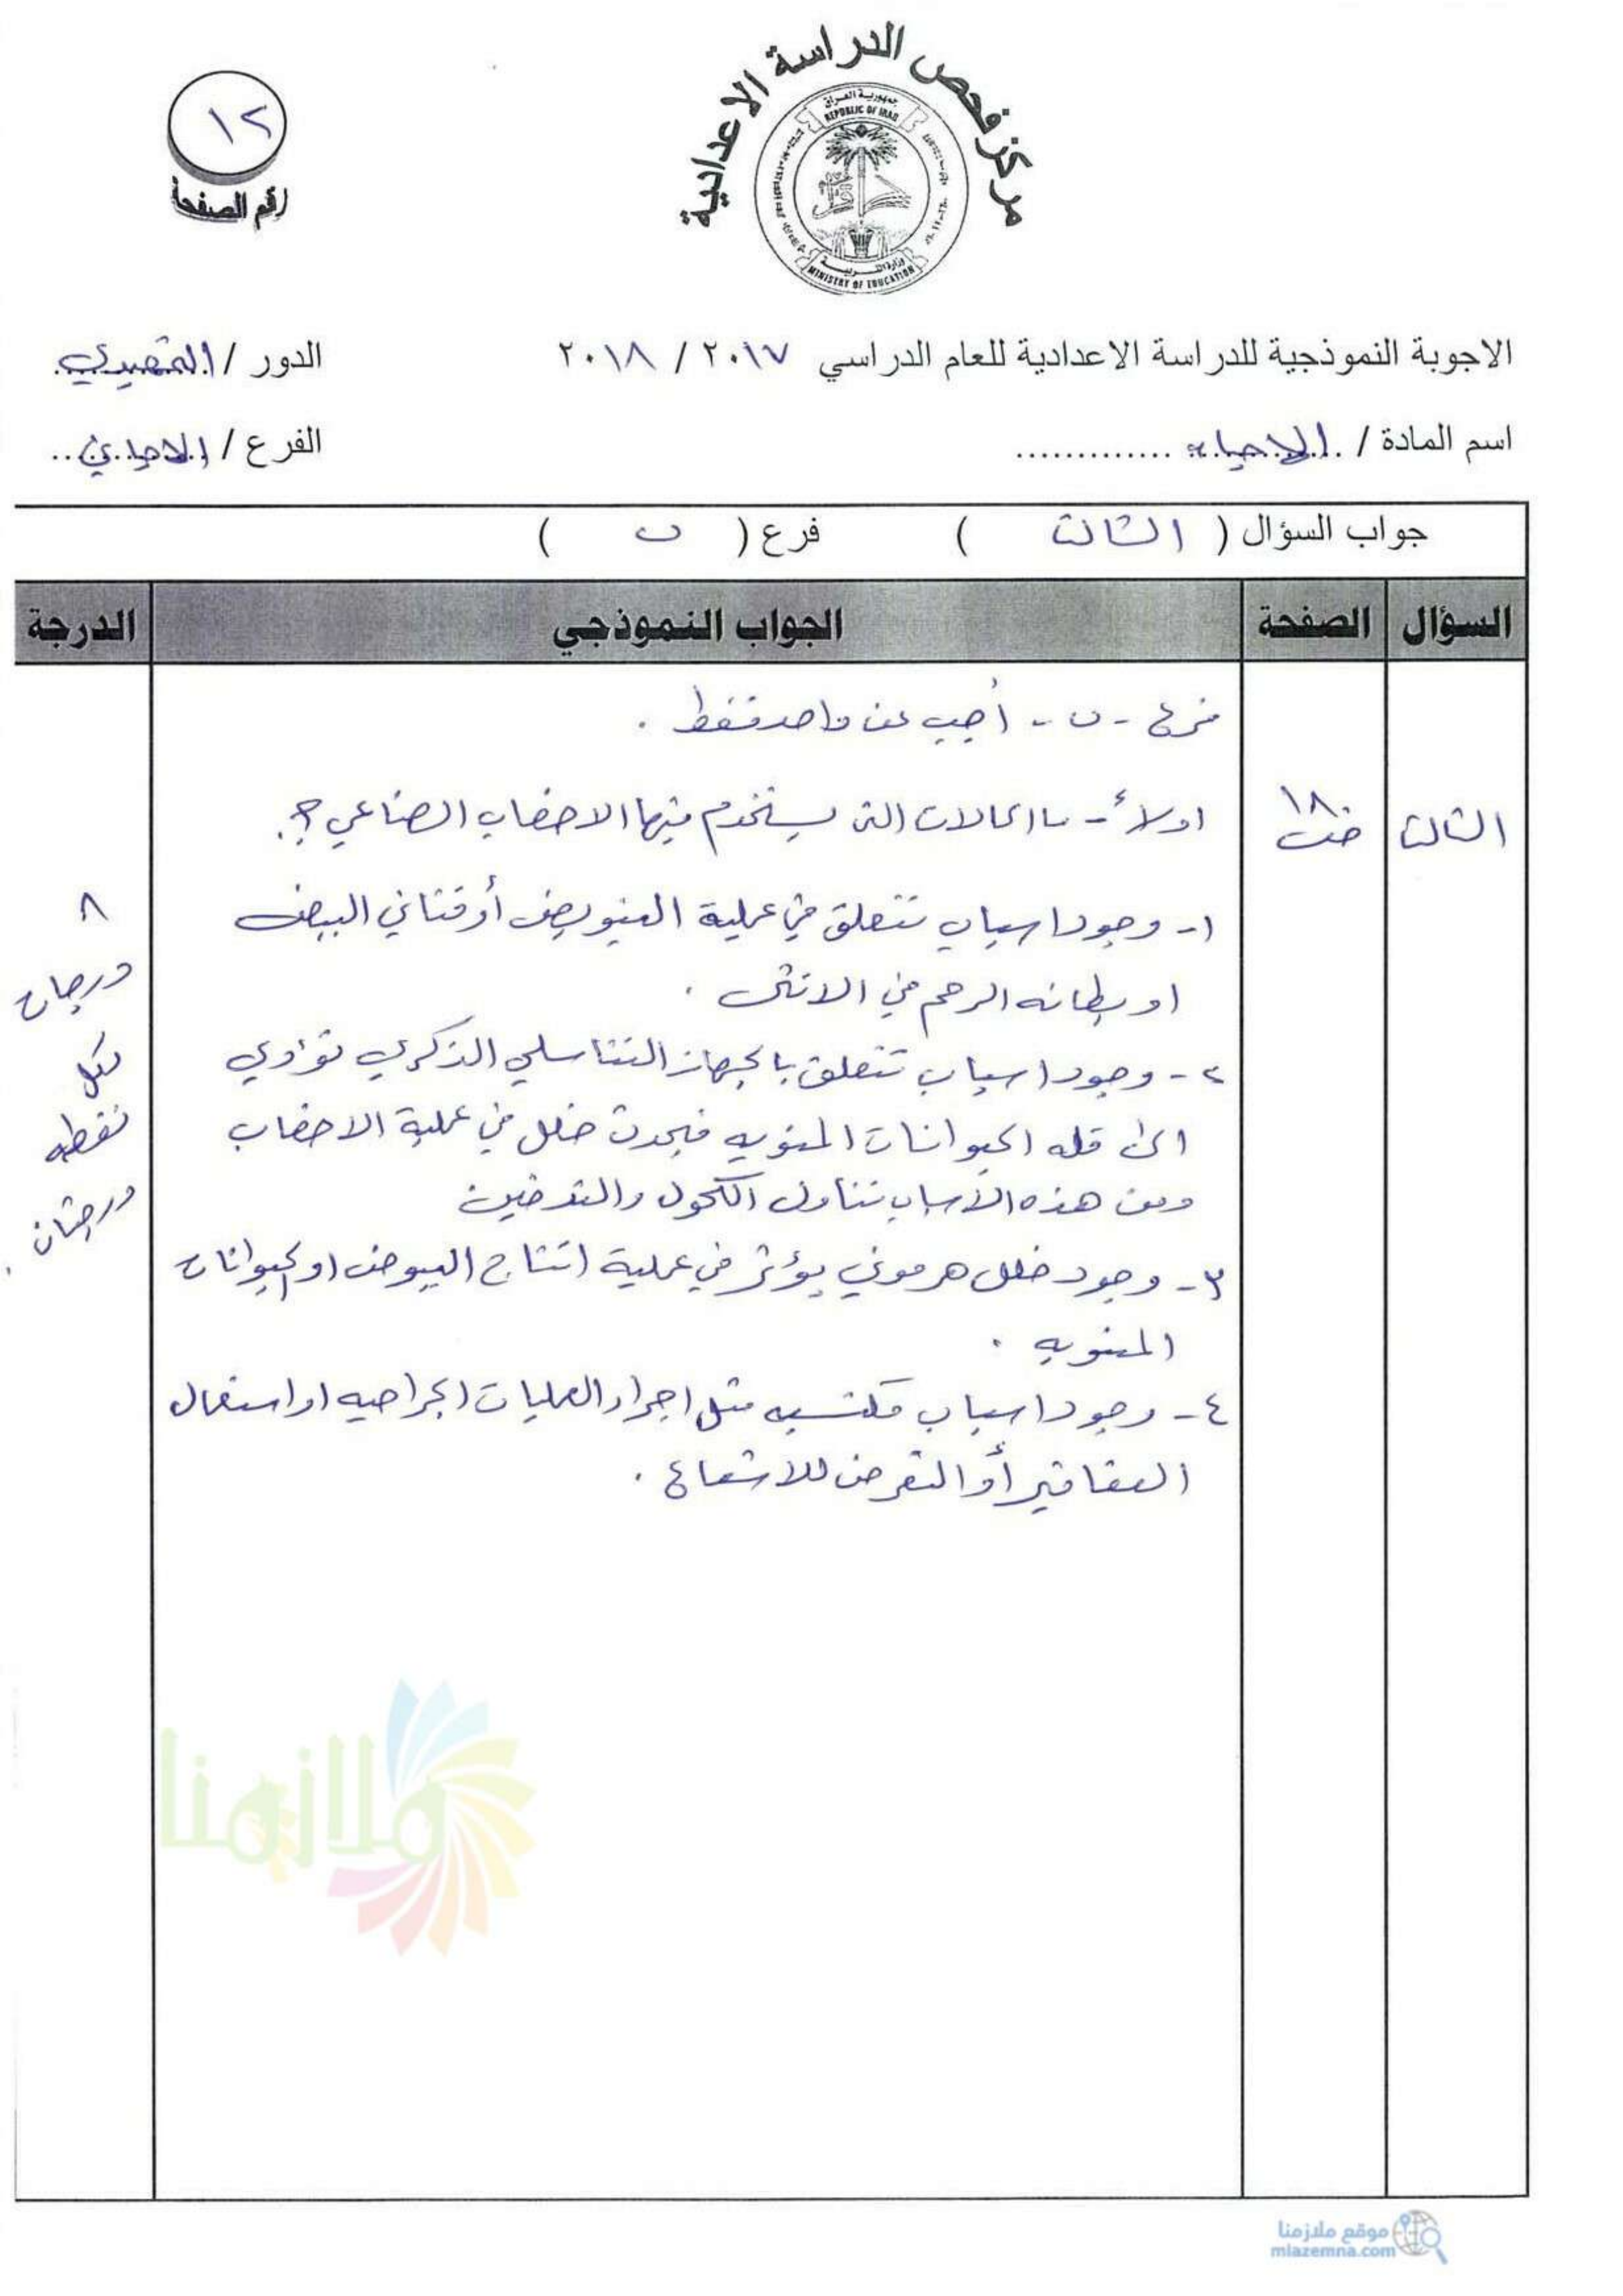 مركز فحص الدراسة الاعدادية
جمهورية العراق
REPUBLIC OF IRAQ
وزارة التربية
MINISTRY OF EDUCATION
١٢
رقم الصفحة
الاجوبة النموذجية للدراسة الاعدادية للعام الدراسي ٢٠١٧ / ٢٠١٨
الدور / التمهيدي
اسم المادة / الاحياء .............
الفرع / الاحيائي ..
جواب السؤال ( الثالث ) فرع ( ب )
السؤال الصفحة الجواب النموذجي الدرجة
فرع - ب - أجب عن واحد فقط .
الثالث
١٨٠
اولاً - ما الحالات التي يستخدم فيها الاخصاب الصناعي ؟.
١- وجود اسباب تتعلق في عملية التبويض أو قناتي البيض
او بطانه الرحم في الانثى .
٢- وجود اسباب تتعلق بالجهاز التناسلي الذكري تؤدي
الى قله الحيوانات المنويه فيحدث خلل في عملية الاخصاب
ومن هذه الأسباب تناول الكحول والتدخين
٣- وجود خلل هرموني يؤثر في عملية انتاج البيوض او الحيوانات
المنويه .
٤- وجود اسباب مكتسبه مثل اجراء العمليات الجراحيه او استعمال
العقاقير أو التعرض للاشعاع .
٨
درجات
لكل
نقطه
درجتان .
ملازمنا
موقع ملازمنا
mlazemna.com